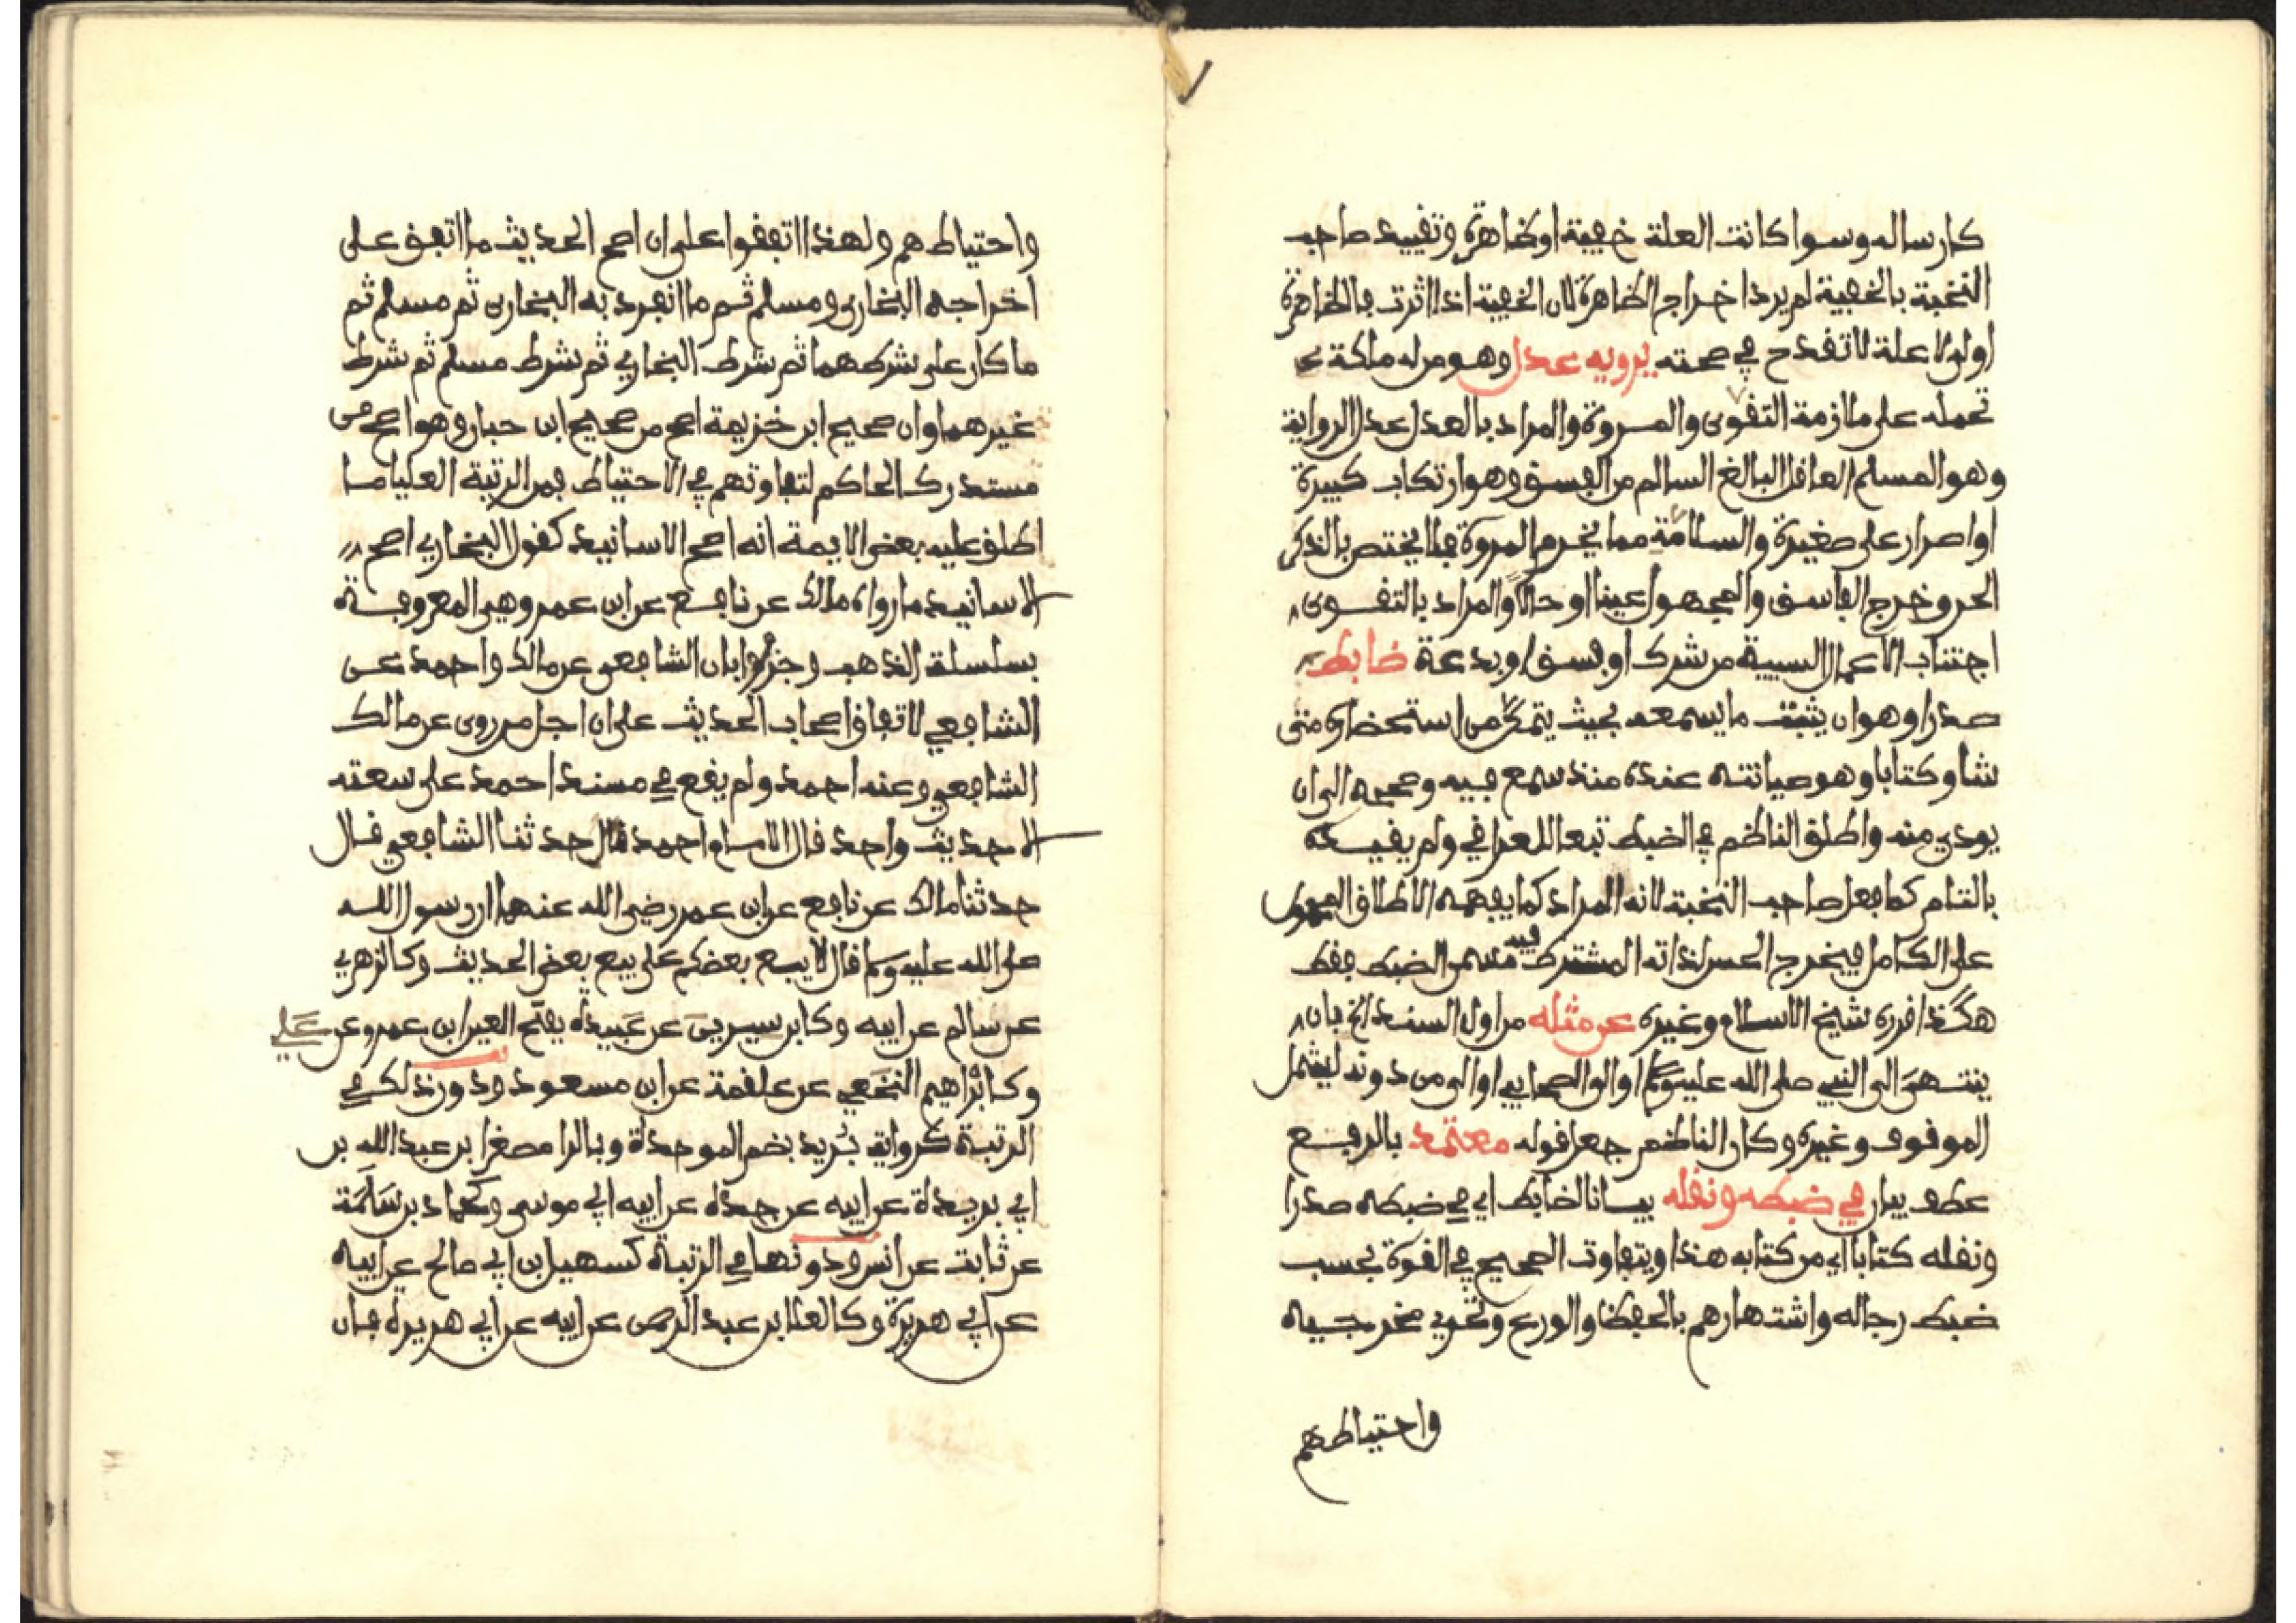 كارساله وسوا كانت العلة خفية او ظاهرة وتقييد صاحب
النخبة بالخفية لم يرد اخراج الظاهرة لان الخفية اذا اثرت فالظاهرة
اولى لا علة لا تقدح في صحته يرويه عدل وهو من له ملكة
تحمله على ملازمة التقوى والمروة والمراد بالعدل عدل الرواية
وهو المسلم العاقل البالغ السالم من الفسق وهو ارتكاب كبيرة
او اصرار على صغيرة والسلامة مما يخرم المروة فلا يختص بالذكر
الحر وخرج الفاسق والمجهول عينا او حالا والمراد بالتقوى
اجتناب الاعمال السيية من شرك او فسق او بدعة ضابط
صدرا وهو ان يثبت ما يسمعه بحيث يتمكن من استحضاره متى
شا وكتابا وهو صيانته عنده منذ سمع فيه وصححه الى ان
يودي منه واطلق الناظم في الضبط تبعا للعراقي ولم يقيده
بالتام كما فعل صاحب النخبة لانه المراد كما يفهمه الاطلاق المحمول
على الكامل فيخرج الحسن لذاته المشترط فيه مسمى الضبط فقط
هكذا قرره شيخ الاسلام وغيره عن مثله من اول السند الخ بان
ينتهى الى النبي صلى الله عليه وسلم او الى الصحابي او الى من دونه ليشمل
الموقوف وغيره وكان الناظم جعل قوله معتمد بالرفع
عطف بيان في ضبطه ونقله بيانا لضابط اي في ضبطه صدرا
ونقله كتابا اي من كتابه هذا ويتفاوت الصحيح في القوة بحسب
ضبط رجاله واشتهارهم بالحفظ والورع وتحري مخرجيه
واحتياطهم
واحتياطهم ولهذا اتفقوا على ان اصح الحديث ما اتفق على
اخراجه البخاري ومسلم ثم ما انفرد به البخاري ثم مسلم ثم
ما كان على شرطهما ثم شرط البخاري ثم شرط مسلم ثم شرط
غيرهما وان صحيح ابن خزيمة اصح من صحيح ابن حبان وهو اصح من
مستدرك الحاكم لتفاوتهم في الاحتياط فمن الرتبة العليا ما
اطلق عليه بعض الايمة انه اصح الاسانيد كقول البخاري اصح
الاسانيد ما رواه مالك عن نافع عن ابن عمر وهي المعروفة
بسلسلة الذهب وجزموا بان الشافعي عن مالك واحمد عن
الشافعي لاتفاق اصحاب الحديث على ان اجل من روى عن مالك
الشافعي وعنه احمد ولم يقع في مسند احمد على سعته
الا حديث واحد قال الامام احمد قال حدثنا الشافعي قال
حدثنا مالك عن نافع عن ابن عمر رضي الله عنهما ان رسول الله
صلى الله عليه وسلم قال لا يبع بعضكم على بيع بعض الحديث وكالزهري
عن سالم عن ابيه وكابن سيرين عن عبيدة بفتح العين ابن عمرو عن علي
وكابراهيم النخعي عن علقمة عن ابن مسعود ودون ذلك في
الرتبة كرواية بريد بضم الموحدة وبالرا مصغرا بن عبد الله بن
ابي بريدة عن ابيه عن جده عن ابيه ابي موسى وكحماد بن سلمة
عن ثابت عن انس ودونها في الرتبة كسهيل بن ابي صالح عن ابيه
عن ابي هريرة وكالعلا بن عبد الرحمن عن ابيه عن ابي هريرة فان